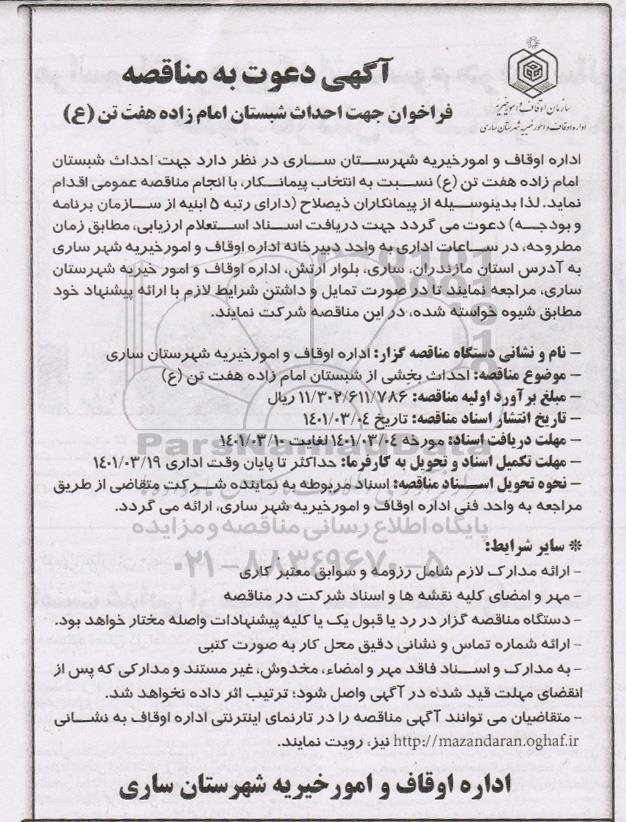 آگهی دعوت به مناقصه
فراخوان جهت احداث شبستان امام زاده هفت تن (ع)
سازمان اوقاف و امور خیریه
اداره اوقاف و امور خیریه شهرستان ساری
اداره اوقاف و امورخیریه شهرستان ساری در نظر دارد جهت احداث شبستان
امام زاده هفت تن (ع) نسبت به انتخاب پیمانکار، با انجام مناقصه عمومی اقدام
نماید. لذا بدینوسیله از پیمانکاران ذیصلاح (دارای رتبه ۵ ابنیه از سازمان برنامه
و بودجه) دعوت می گردد جهت دریافت اسناد استعلام ارزیابی، مطابق زمان
مطروحه، در ساعات اداری به واحد دبیرخانه اداره اوقاف و امورخیریه شهر ساری
به آدرس استان مازندران، ساری، بلوار ارتش، اداره اوقاف و امور خیریه شهرستان
ساری، مراجعه نمایند تا در صورت تمایل و داشتن شرایط لازم با ارائه پیشنهاد خود
مطابق شیوه خواسته شده، در این مناقصه شرکت نمایند.
– نام و نشانی دستگاه مناقصه گزار: اداره اوقاف و امورخیریه شهرستان ساری
– موضوع مناقصه: احداث بخشی از شبستان امام زاده هفت تن (ع)
– مبلغ برآورد اولیه مناقصه: ۱۱/۳۰۲/۶۱۱/۷۸۶ ریال
– تاریخ انتشار اسناد مناقصه: تاریخ ۱۴۰۱/۰۳/۰۴
– مهلت دریافت اسناد: مورخه ۱۴۰۱/۰۳/۰۴ لغایت ۱۴۰۱/۰۳/۱۰
– مهلت تکمیل اسناد و تحویل به کارفرما: حداکثر تا پایان وقت اداری ۱۴۰۱/۰۳/۱۹
– نحوه تحویل اسناد مناقصه: اسناد مربوطه به نماینده شرکت متقاضی از طریق
مراجعه به واحد فنی اداره اوقاف و امورخیریه شهر ساری، ارائه می گردد.
ParsNamadData
پایگاه اطلاع رسانی مناقصه و مزایده
۰۲۱-۸۸۳۴۹۶۷۰-۵
* سایر شرایط:
– ارائه مدارک لازم شامل رزومه و سوابق معتبر کاری
– مهر و امضای کلیه نقشه ها و اسناد شرکت در مناقصه
– دستگاه مناقصه گزار در رد یا قبول یک یا کلیه پیشنهادات واصله مختار خواهد بود.
– ارائه شماره تماس و نشانی دقیق محل کار به صورت کتبی
– به مدارک و اسناد فاقد مهر و امضاء، مخدوش، غیر مستند و مدارکی که پس از
انقضای مهلت قید شده در آگهی واصل شود؛ ترتیب اثر داده نخواهد شد.
– متقاضیان می توانند آگهی مناقصه را در تارنمای اینترنتی اداره اوقاف به نشانی
http://mazandaran.oghaf.ir نیز، رویت نمایند.
اداره اوقاف و امور خیریه شهرستان ساری